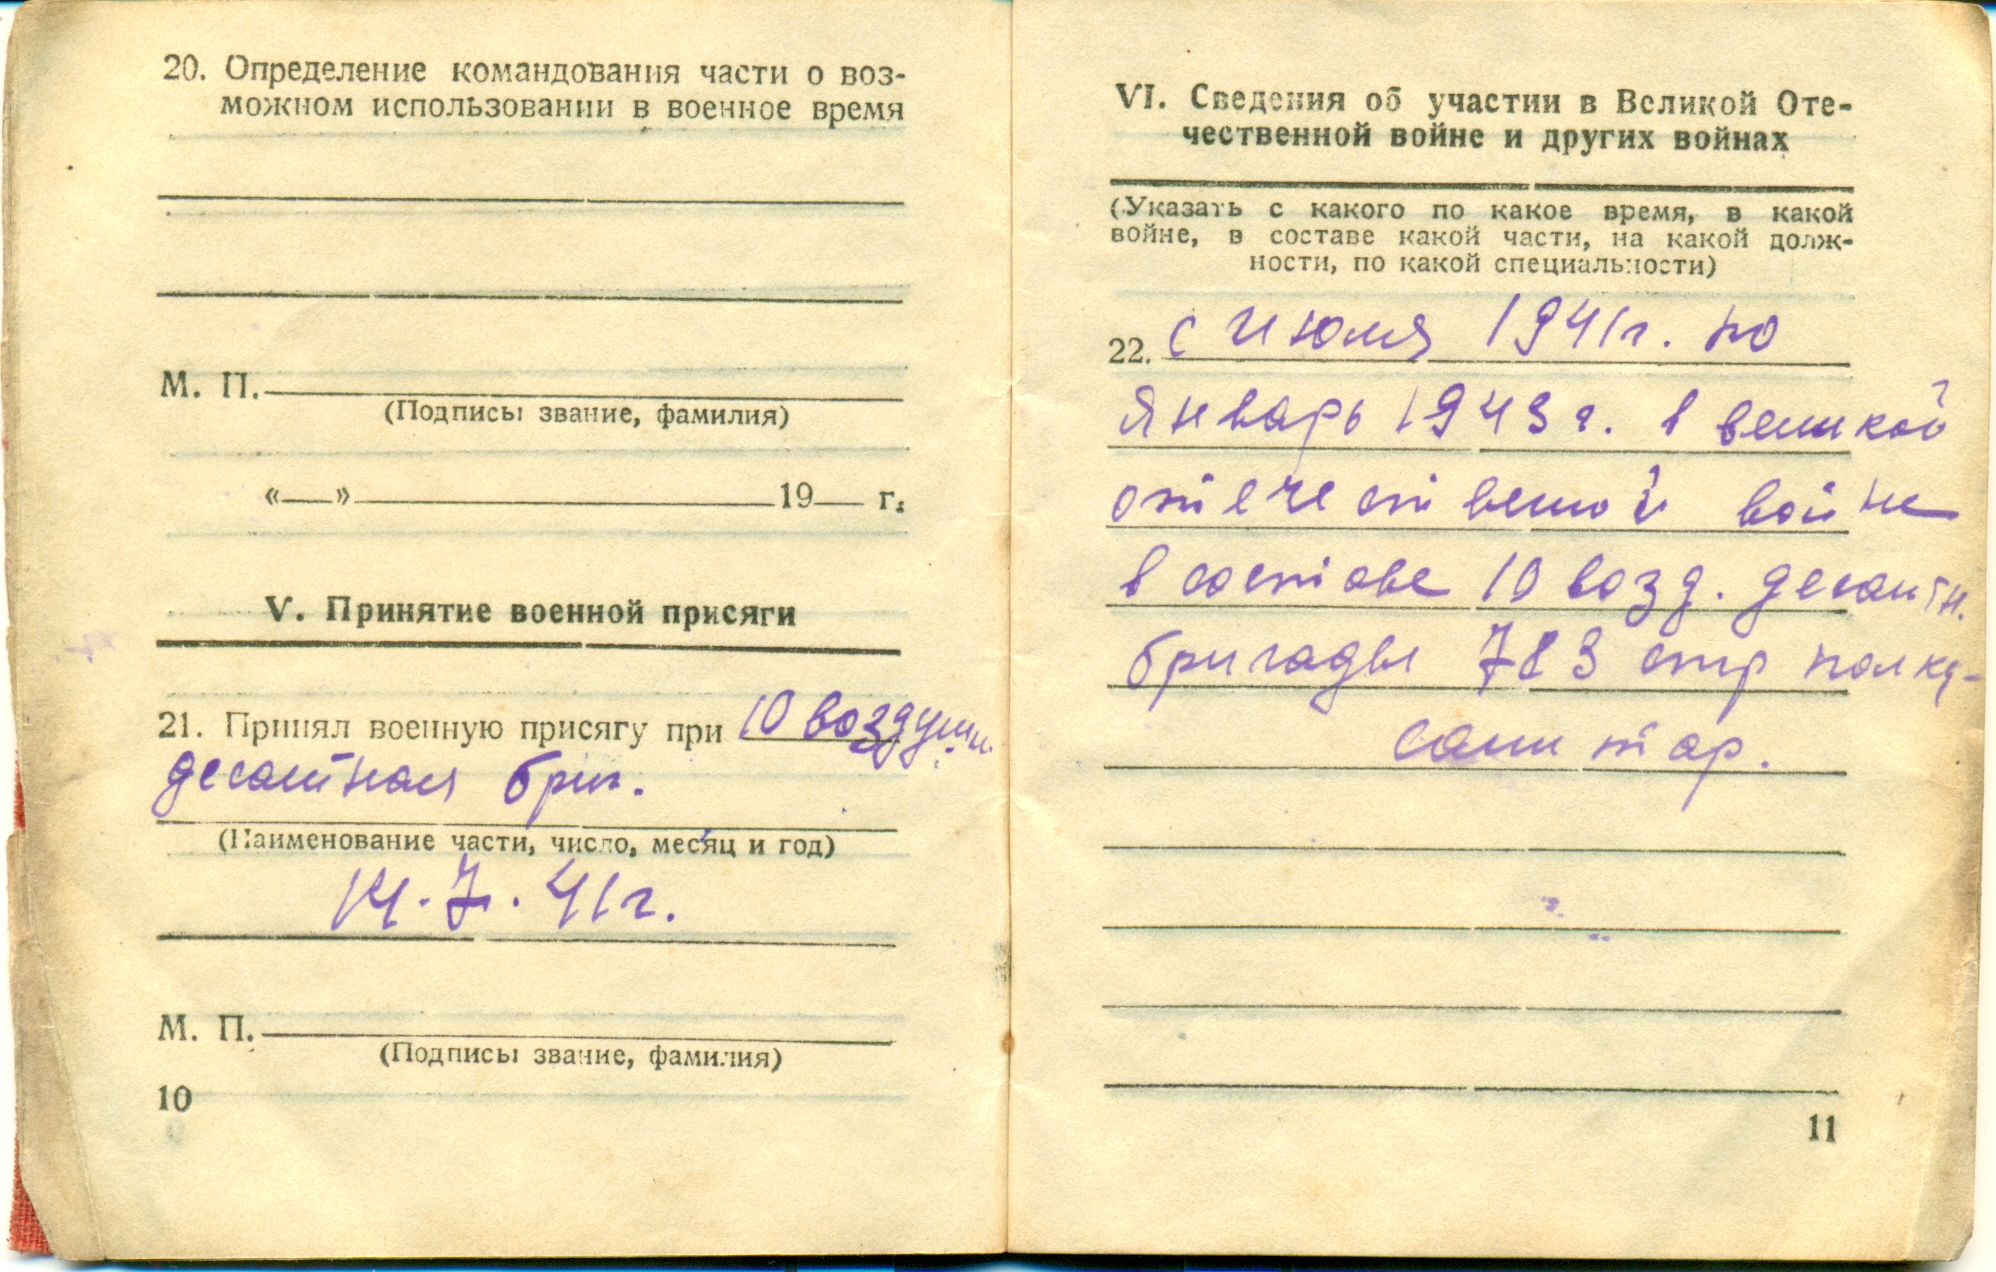 20. Определение командования части о воз-
можном использовании в военное время
М. П.
(Подписы звание, фамилия)
«—» 19— г.
V. Принятие военной присяги
21. Принял военную присягу при 10 воздушн.
десантная бриг.
(Наименование части, число, месяц и год)
14.7.41г.
М. П.
(Подписы звание, фамилия)
10
VI. Сведения об участии в Великой Оте-
чественной войне и других войнах
(Указать с какого по какое время, в какой
войне, в составе какой части, на какой долж-
ности, по какой специальности)
22. с июля 1941г. по
январь 1943г. в великой
отечественой войне
в составе 10 возд. десантн.
бригады 783 стр полка-
санитар.
11